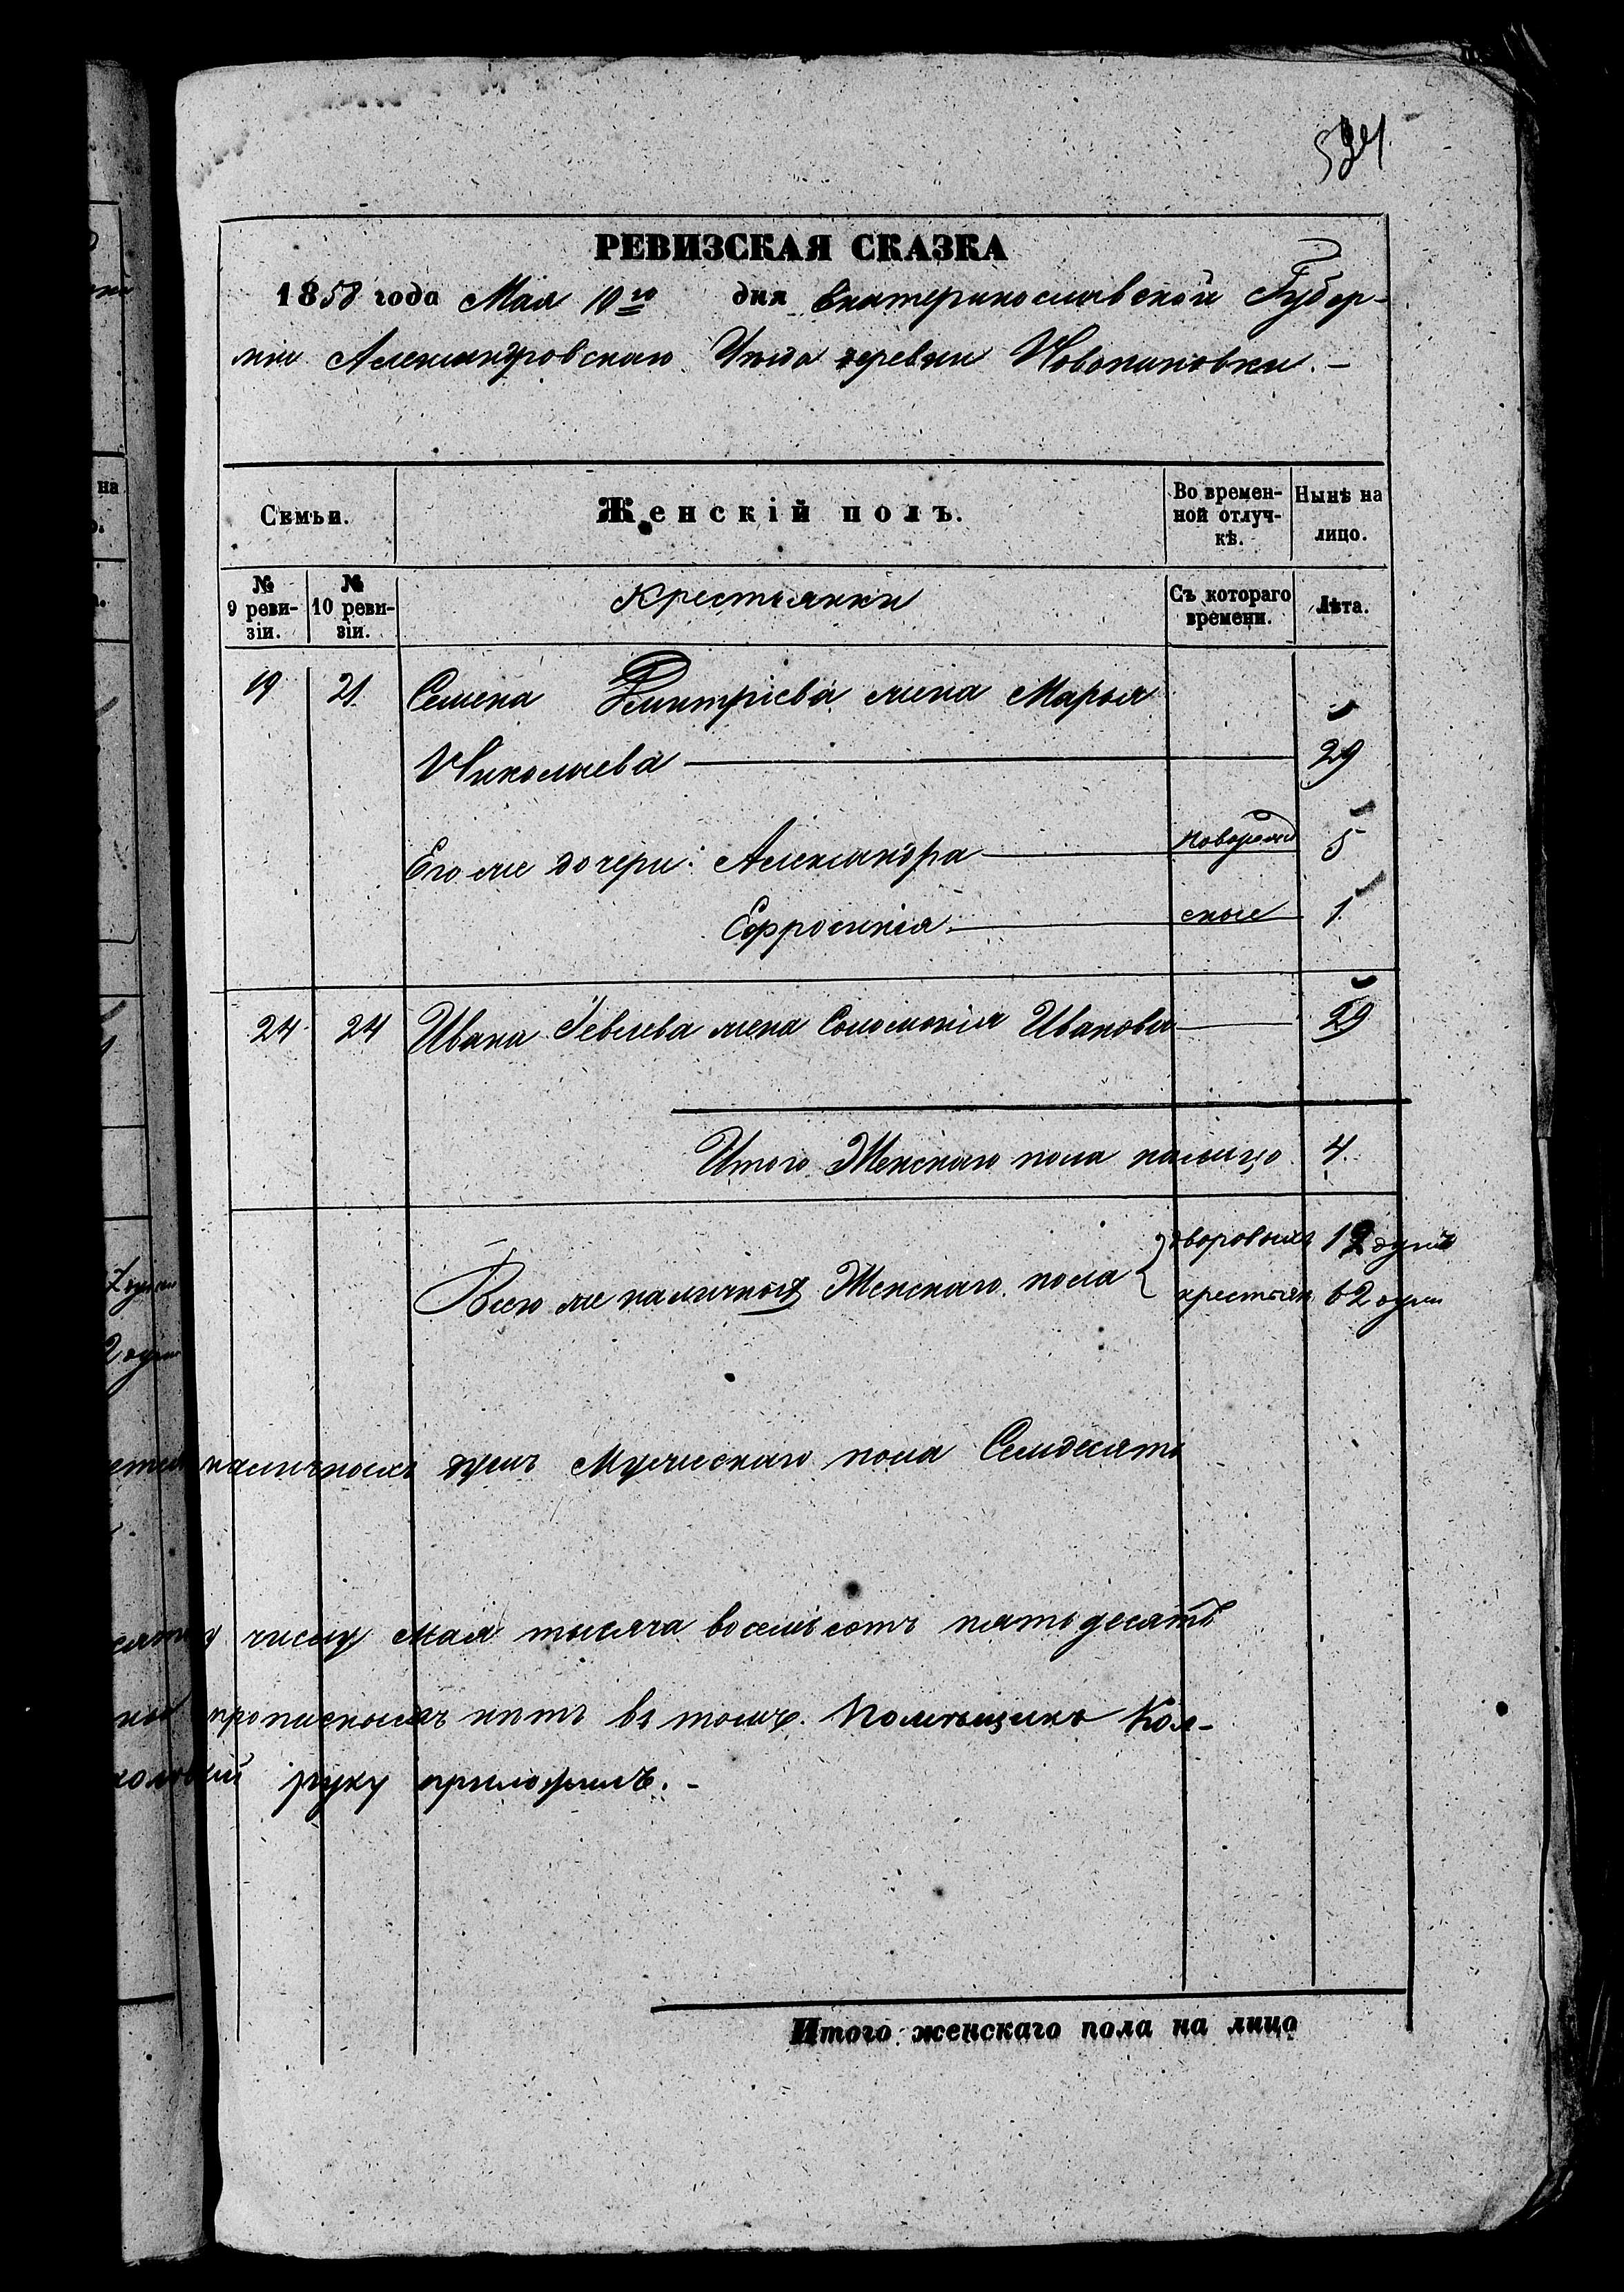 524
РЕВИЗСКАЯ СКАЗКА
1858 года Мая 10го дня Екатеринославской Губер-
нии Александровскаго Уѣзда деревни
Семьи.
Женскій полъ.
Во времен-
ной отлуч-
кѣ.
Нынѣ на
лицо.
№
9 реви-
зіи.
№
10 реви-
зіи.
Крестьянки
Съ котораго
времени.
Лѣта.
19 21. Семена Дмитріева жена Марья
Николаева 29
Его же дочери: Александра новорожд 5
Ефросинія енные 1.
24 24 Ивана жена Соломонія Иванова 29
Итого Женскаго пола налицо 4.
Всего же наличныхъ Женскаго пола { дворовыхъ 12 душъ
крестьян 62 души
наличныхъ душъ Мужескаго пола Семдесятъ
числу мая тысяча восемьсотъ пятьдесятъ
прописныхъ нѣтъ въ томъ. Помѣщикъ Кол-
руку приложилъ. -
Итого женскаго пола на лицо